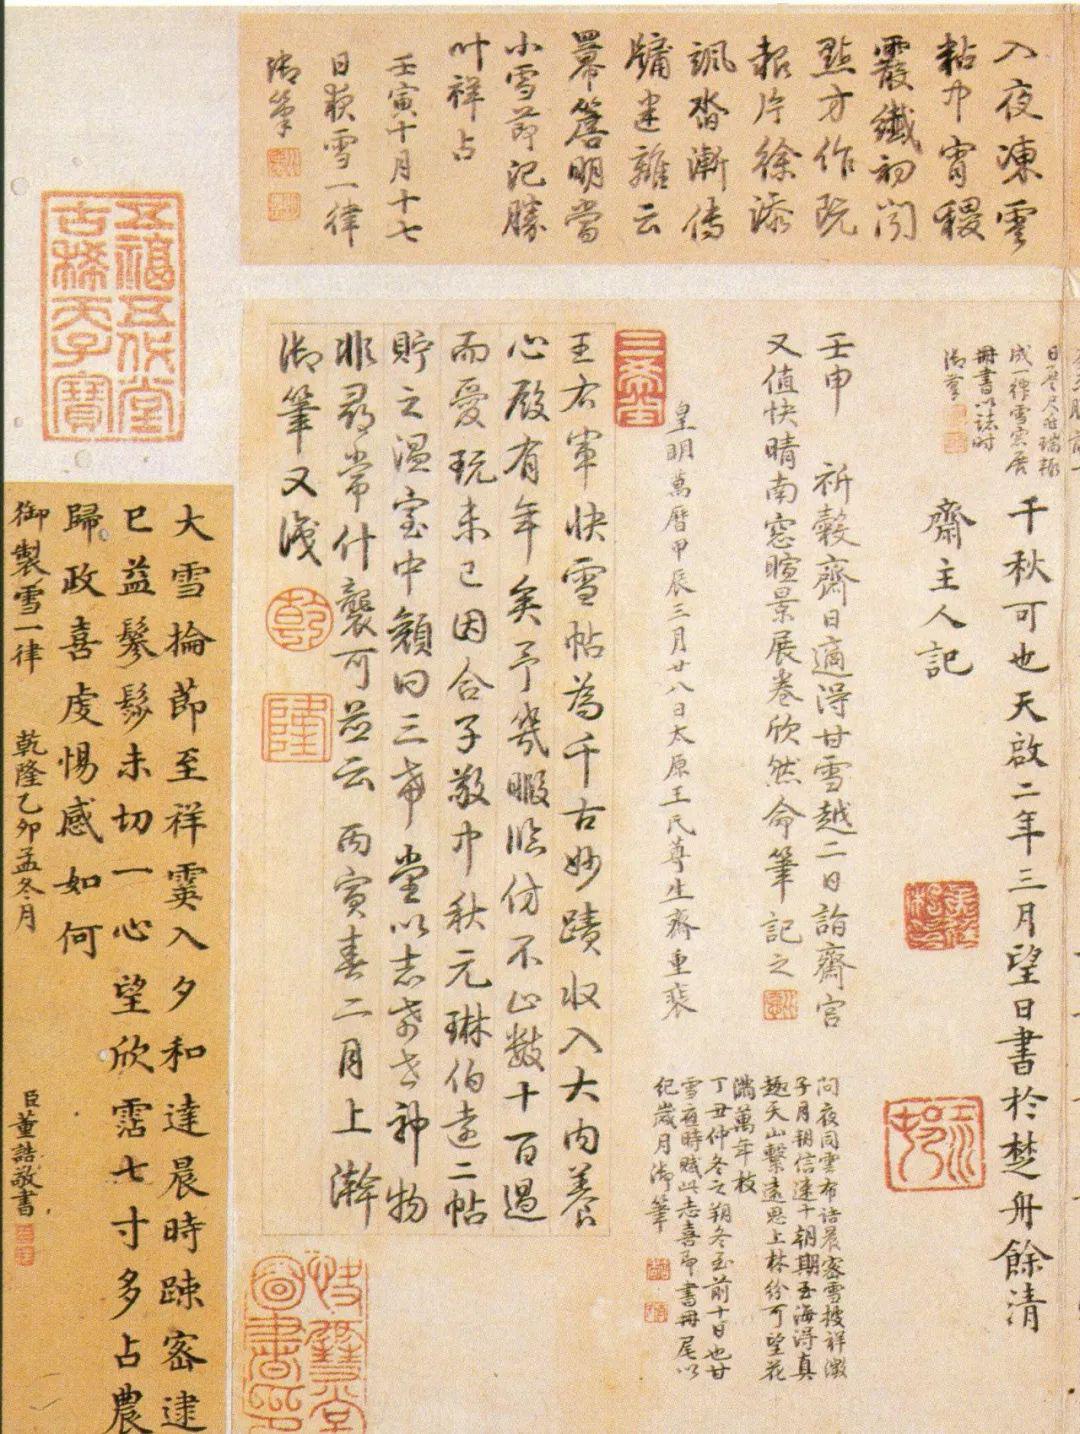 入夜凍雲
巾宵
霰纖初聞
點方作玩
片徐添
沓漸傳
離云
冪簷明當
小雪節記勝
叶祥占
壬寅十月十七
日夜雪一律
御筆
成一律雪窓展
冊書以誌時
御筆
千秋可也天啟二年三月望日書於楚舟餘清
齋主人記
壬申 祈穀齋日適得甘雪越二日詣齋宮
又值快晴南窓暄景展卷欣然命筆記之
皇明萬曆甲辰三月廿八日太原王氏尊生齋重裝
問夜同雲布詰晨密雪披祥徵
子月朔信達十朝期玉海得真
趣天山繫遠思上林紛可望花
滿萬年枝
丁丑仲冬之朔冬至前十日也甘
雪應時賦此志喜即書冊尾以
紀歲月御筆
三希堂
王右軍快雪帖為千古妙蹟收入大內養
心殿有年矣予幾暇臨仿不止數十百過
而愛玩未已因合子敬中秋元琳伯遠二帖
貯之溫室中顏曰三希堂以志希世神物
非尋常什襲可並云 丙寅春二月上澣
御筆又識
乾
隆
五福五代堂
古稀天子寶
大雪掄節至祥霙入夕和達晨時疎密逮
巳益鬖髿未切一心望欣霑七寸多占農
歸政喜虔惕感如何
御製雪一律 乾隆乙卯孟冬月 臣董誥敬書